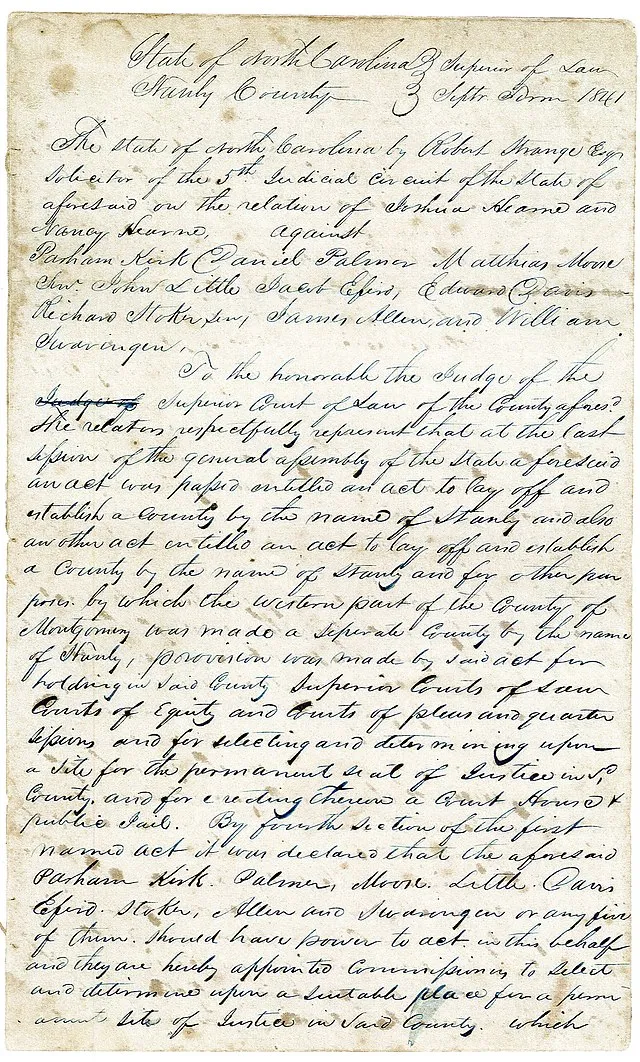 State of North Carolina } Superior of Law
Stanly County } Septr Term 1841
The State of North Carolina by Robert Strange Esqr
Solicitor of the 5th Judicial circuit of the State of
aforesaid on the relation of Joshua Hearne and
Nancy Hearne, against
Parham Kirk Daniel Palmer Matthias Moose
Senr. John Little Jacob Efird, Edward Davis
Richard Stoker Sen, James Allen, and William
Swaringen,
To the honorable the Judge of the
Judge of Superior Court of Law of the County afores.d
The relators respectfully represent that at the last
session of the general assembly of the State aforesaid
an act was passd entitled an act to lay off and
establish a County by the name of Stanly and also
another act entitled an act to lay off and establish
a County by the name of Stanly and for other pur
poses. by which the western part of the County of
Montgomery was made a seperate County by the name
of Stanly, provision was made by said act for
holding in said County Superior Courts of Law
Courts of Equity and Courts of pleas and quarter
sessions and for selecting and determining upon
a site for the permanent seat of Justice in sd
County, and for erecting thereon a Court House &
public Jail. By fourth section of the first
named act it was declared that the aforesaid
Parham Kirk. Palmer, Moose. Little. Davis
Efird. Stoker, Allen and Swaringen or any five
of them. should have power to act in this behalf
and they are hereby appointed Commissioners to select
and determine upon a suitable place for a perm
anent site of Justice in said County. which